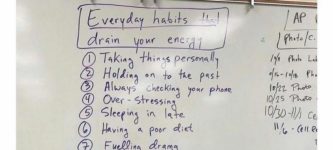 Everyday habits
drain your energy
1 Taking things personally
2 Holding on to the past
3 Always checking your phone
4 Over-stressing
5 Sleeping in late
6 Having a poor diet
7 Fuelling drama
AP
Photo/C
10/22 Photo
10/25 Photo
10/30-11/1
11/6